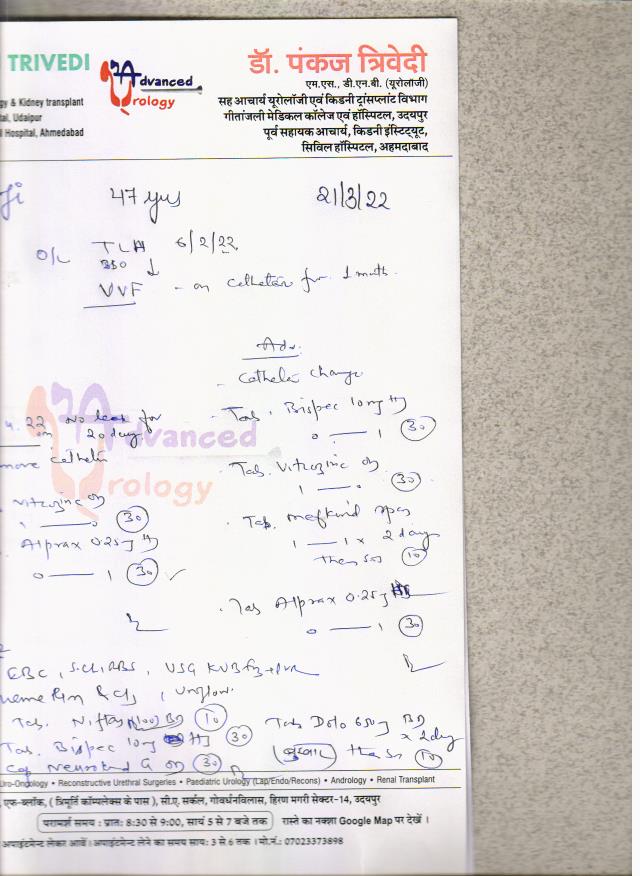 TRIVEDI
Advanced
Urology
डॉ. पंकज त्रिवेदी
एम.एस., डी.एन.बी. (यूरोलॉजी)
gy & Kidney transplant
सह आचार्य यूरोलॉजी एवं किडनी ट्रांसप्लांट विभाग
tal, Udaipur
गीतांजली मेडिकल कॉलेज एवं हॉस्पिटल, उदयपुर
l Hospital, Ahmedabad
पूर्व सहायक आचार्य, किडनी इंस्टिट्यूट,
सिविल हॉस्पिटल, अहमदाबाद
47 yrs
21/3/22
TLH 6/2/22
VVF - on catheter for 1 month.
Adv.
- Catheter change
- Tab. Bispec 10mg
0 — 1 (30)
22 No leak for
20 days
catheter
Advanced
Urology
- Tab. Vitrozinc
1 — 0 (30)
Vitrozinc
1 — 0 (30)
Alprax 0.25
0 — 1 (30)
- Tab. Mefkind spas
1 — 1 x 2 days
then SOS (10)
- Tab Alprax 0.25
0 — 1 (30)
CBC, S.Cr, RBS, USG KUB
Uroflow
Tab. (100) BD (10)
Tab. Bispec 10mg (30)
Cap Neurokind G (30)
Tab Dolo 650 BD
x 2 day
(बुखार) then SOS (10)
Uro-Oncology • Reconstructive Urethral Surgeries • Paediatric Urology (Lap/Endo/Recons) • Andrology • Renal Transplant
एफ-ब्लॉक, ( त्रिमूर्ति कॉम्पलेक्स के पास ), सी.ए. सर्कल, गोवर्धनविलास, हिरण मगरी सेक्टर-14, उदयपुर
परामर्श समय : प्रातः 8:30 से 9:00, सायं 5 से 7 बजे तक रास्ते का नक्शा Google Map पर देखें ।
अपाइंटमेन्ट लेकर आवें। अपाइंटमेन्ट लेने का समय सायः 3 से 6 तक । मो.नं.: 07023373898